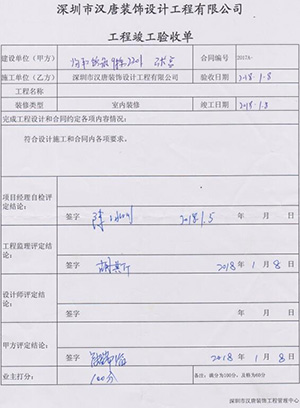 深圳市汉唐装饰设计工程有限公司
工程竣工验收单
建设单位（甲方） 2201 合同编号 2017A-
施工单位（乙方） 深圳市汉唐装饰设计工程有限公司 验收日期 2018.1.8
工程名称
装修类型 室内装修 竣工日期 2018.1.8
完成工程设计和合同约定各项内容情况：
符合设计施工和合同内各项要求。
项目经理自检评定结论：
签字 2018.1.5 年 月 日
工程监理评定结论：
签字 2018 年 1 月 8 日
设计师评定结论：
签字 年 月 日
甲方评定结论：
签字 2018 年 1 月 8 日
业主打分： 100分 备注：满分为100分，及格为60分
深圳市汉唐装饰工程管理中心